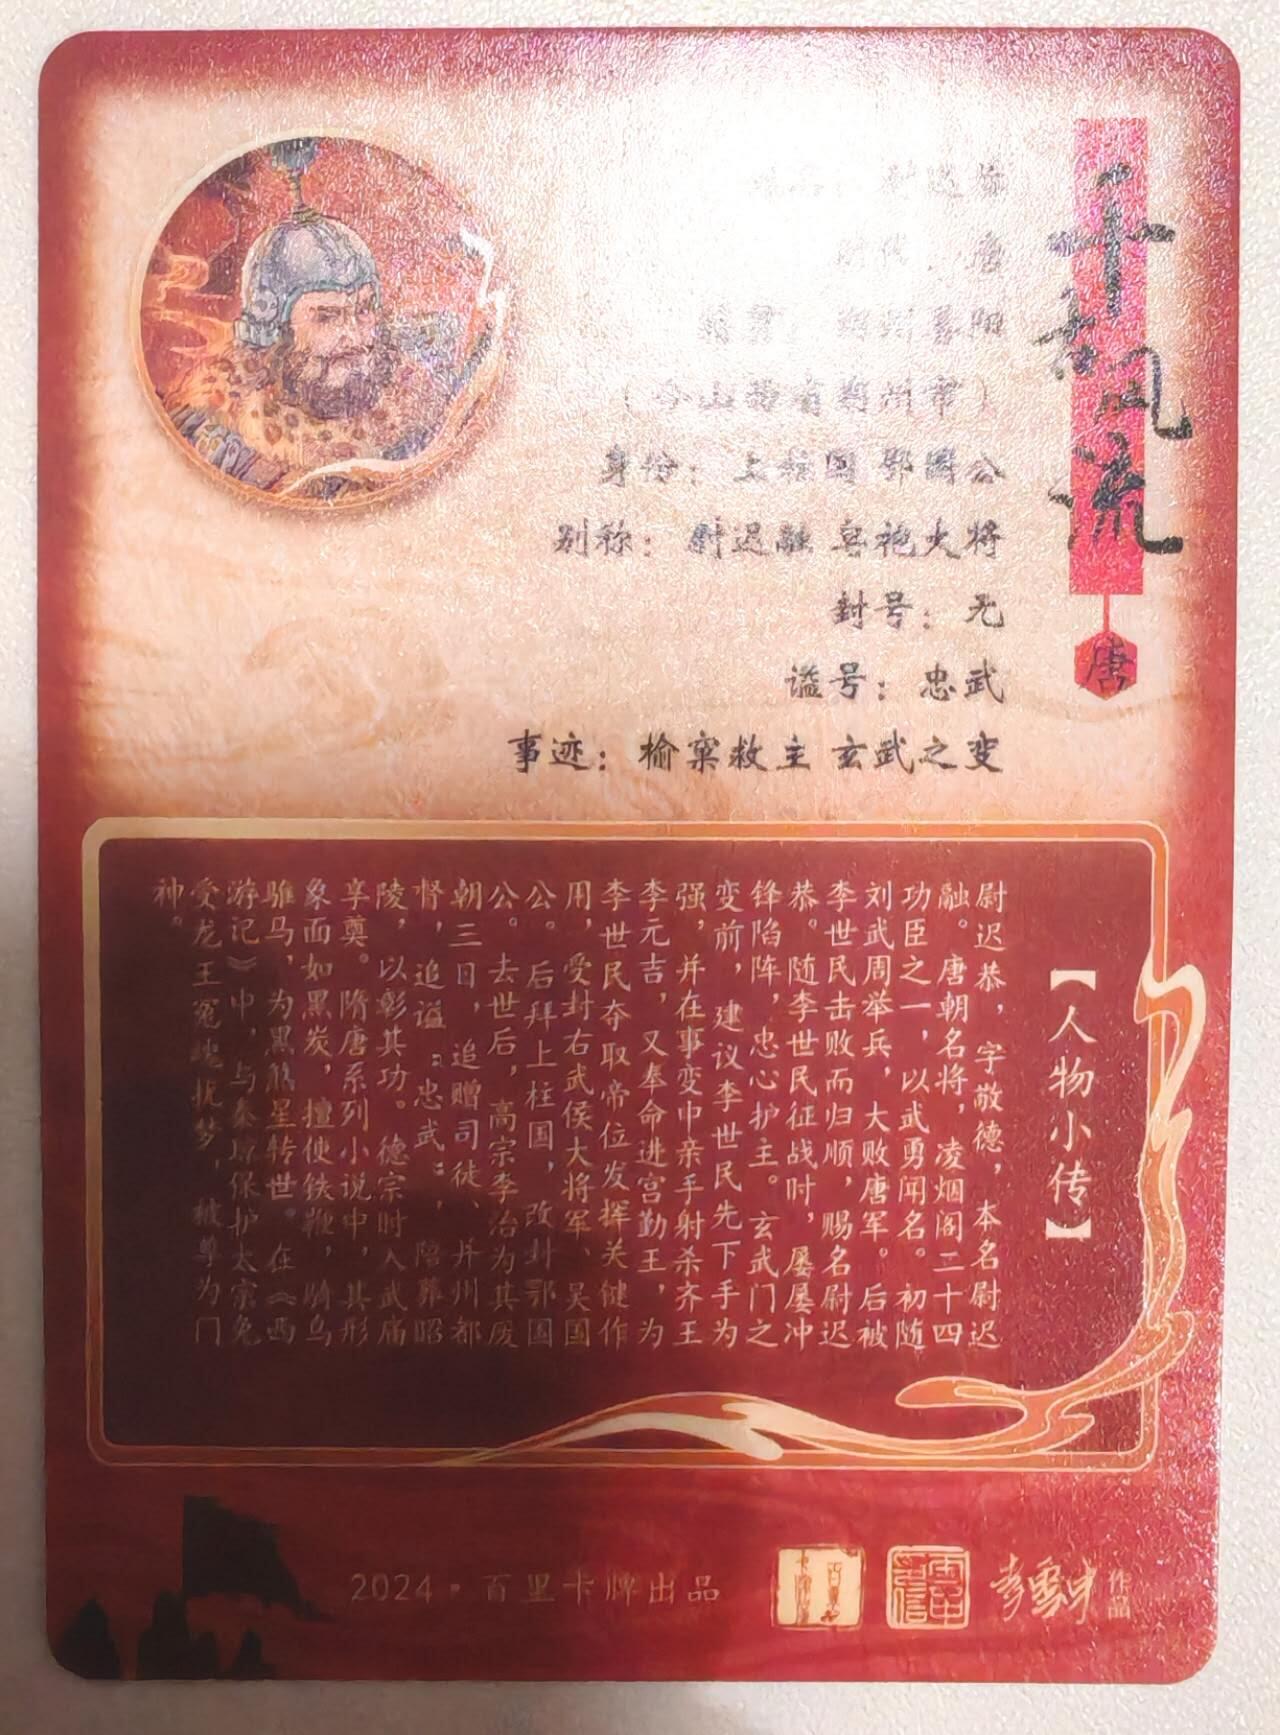 千秋风流
唐
时代：唐
籍贯：朔州鄯阳
（今山西省朔州市）
身份：上柱国 鄂国公
别称：尉迟融 皂袍大将
封号：无
谥号：忠武
事迹：榆窠救主 玄武之变
【人物小传】
尉迟恭，字敬德，本名尉迟
融。唐朝名将，凌烟阁二十四
功臣之一，以武勇闻名。初随
刘武周举兵，大败唐军。后被
李世民击败而归顺，赐名尉迟
恭。随李世民征战时，屡屡冲
锋陷阵，忠心护主。玄武门之
变前，建议李世民先下手为
强，并在事变中亲手射杀齐王
李元吉，又奉命进宫勤王，为
李世民夺取帝位发挥关键作
用，受封右武侯大将军、吴国
公。后拜上柱国，改封鄂国
公。去世后，高宗李治为其废
朝三日，追赠司徒、并州都
督，追谥“忠武”，陪葬昭
陵，以彰其功。德宗时入武庙
享奠。隋唐系列小说中，其形
象面如黑炭，擅使铁鞭，骑乌
骓马，为黑煞星转世。在《西
游记》中，与秦琼保护太宗免
受龙王冤魂扰梦，被尊为门
神。
2024·百里卡牌出品
李云中
作品